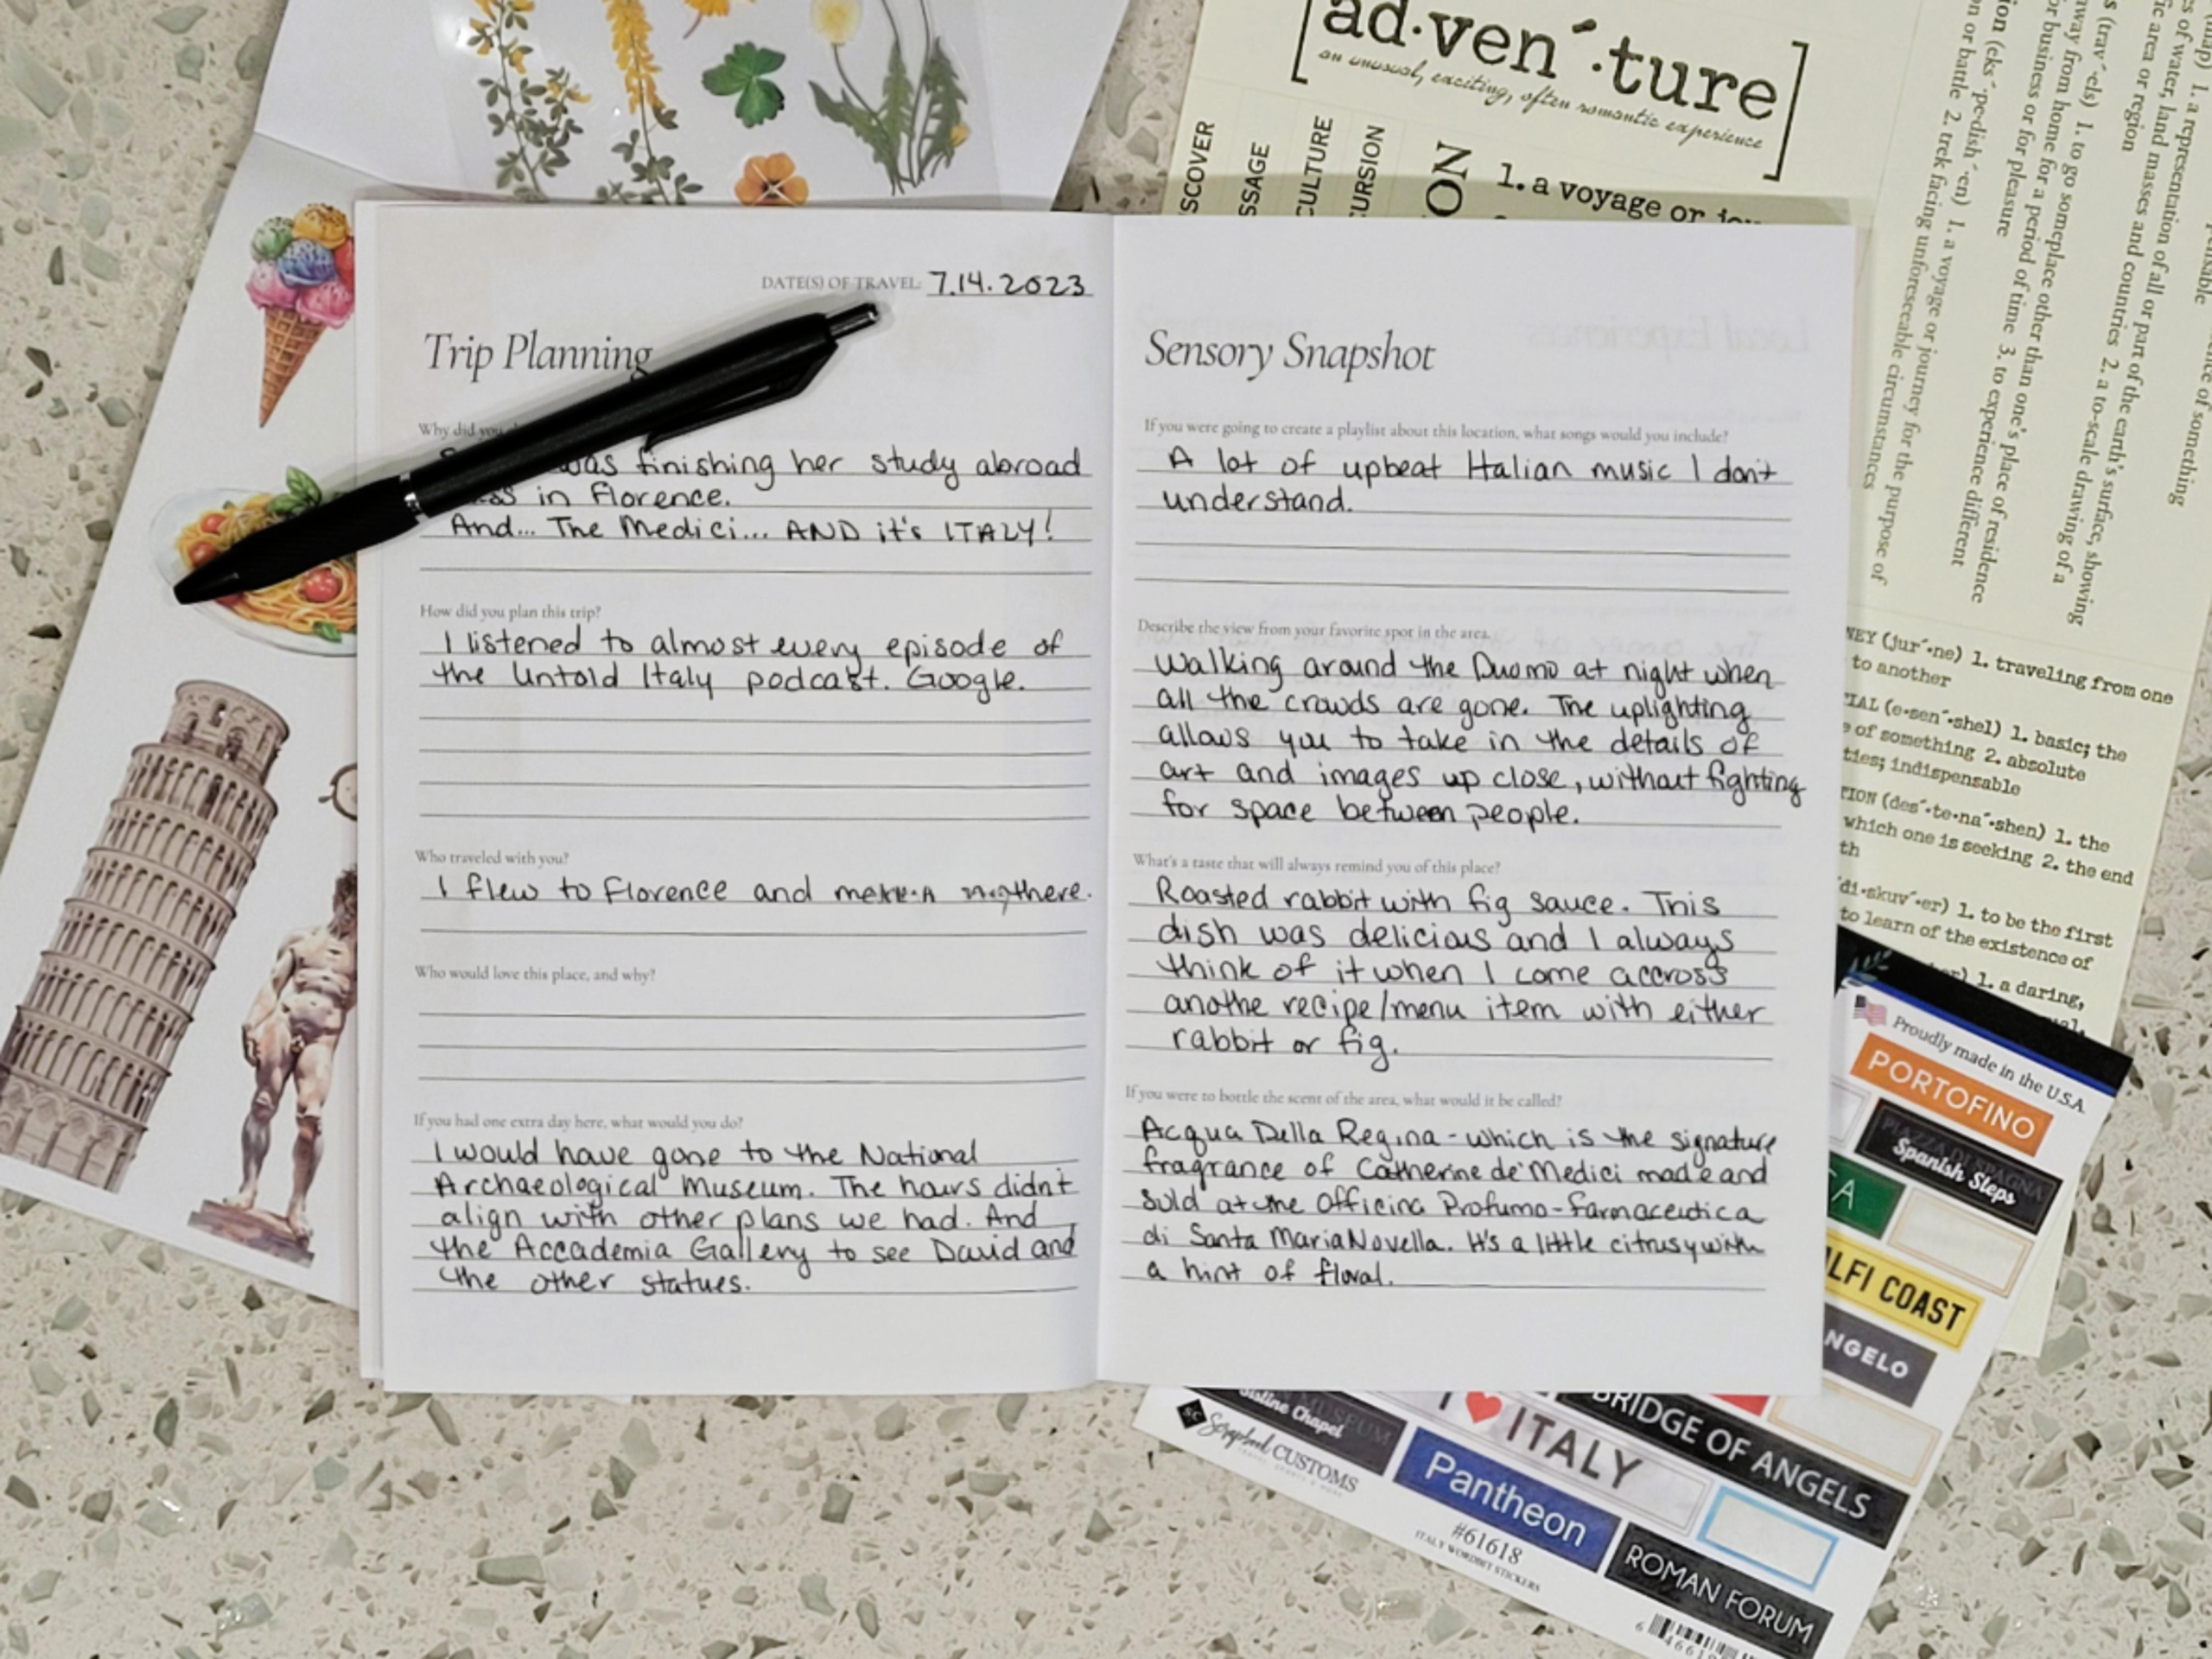 [ad·ven´·ture]
an unusual, exciting, often romantic experience
SCOVER
SSAGE
CULTURE
CURSION
ON
1. a voyage or
DATE(S) OF TRAVEL: 7.14.2023
Trip Planning
Why did you
was finishing her study abroad
in Florence.
And... The Medici... AND it's ITALY!
How did you plan this trip?
I listened to almost every episode of
the Untold Italy podcast. Google.
Who traveled with you?
I flew to Florence and there.
Who would love this place, and why?
If you had one extra day here, what would you do?
I would have gone to the National
Archaeological Museum. The hours didn't
align with other plans we had. And
the Accademia Gallery to see David and
the other statues.
Sensory Snapshot
If you were going to create a playlist about this location, what songs would you include?
A lot of upbeat Italian music I don't
understand.
Describe the view from your favorite spot in the area.
Walking around the Duomo at night when
all the crowds are gone. The uplighting
allows you to take in the details of
art and images up close, without fighting
for space between people.
What's a taste that will always remind you of this place?
Roasted rabbit with fig sauce. This
dish was delicious and I always
think of it when I come accross
anothe recipe/menu item with either
rabbit or fig.
If you were to bottle the scent of the area, what would it be called?
Acqua Della Regina - which is the signature
fragrance of Catherine de' Medici made and
sold at the Officina Profumo-Farmaceutica
di Santa Maria Novella. It's a little citrusy with
a hint of floral.
(map) 1. a representation of all or part of the earth's surface, showing
es of water, land masses and countries 2. a to-scale drawing of a
fic area or region
s (trav´·els) 1. to go someplace other than one's place of residence
away from home for a period of time 3. to experience different
or business or for pleasure
ion (eks´·pe·dish´·en) 1. a voyage or journey for the purpose of
n or battle 2. trek facing unforeseeable circumstances
NEY (jur´·ne) 1. traveling from one
to another
TIAL (e·sen´·shel) 1. basic; the
e of something 2. absolute
ties; indispensable
TION (des´·te·na´·shen) 1. the
which one is seeking 2. the end
th
di·skuv´·er) 1. to be the first
to learn of the existence of
1. a daring,
Proudly made in the U.S.A.
PORTOFINO
PIAZZA DI SPAGNA
Spanish Steps
TA
LFI COAST
NGELO
MUSEUM
Sistine Chapel
I ITALY
BRIDGE OF ANGELS
SC
Scrapbook CUSTOMS
Pantheon
#61618
ITALY WORDBIT STICKERS
ROMAN FORUM